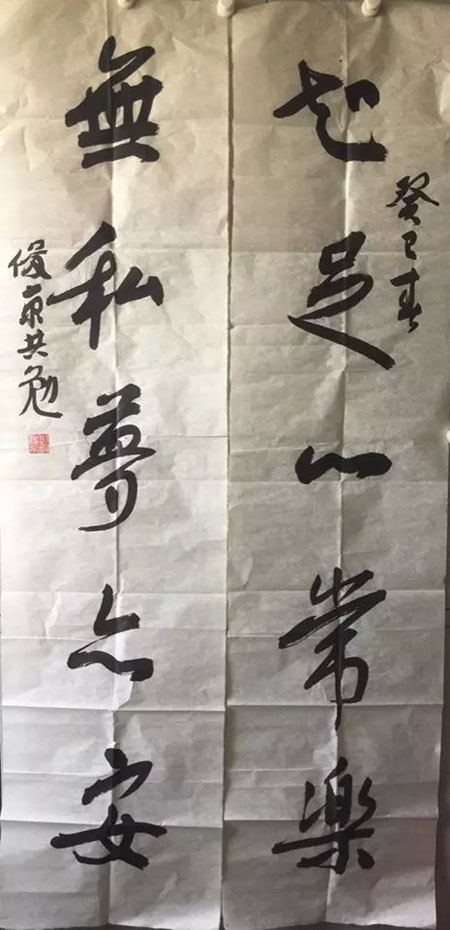 癸巳春
知足心常樂
無私夢亦安
共勉